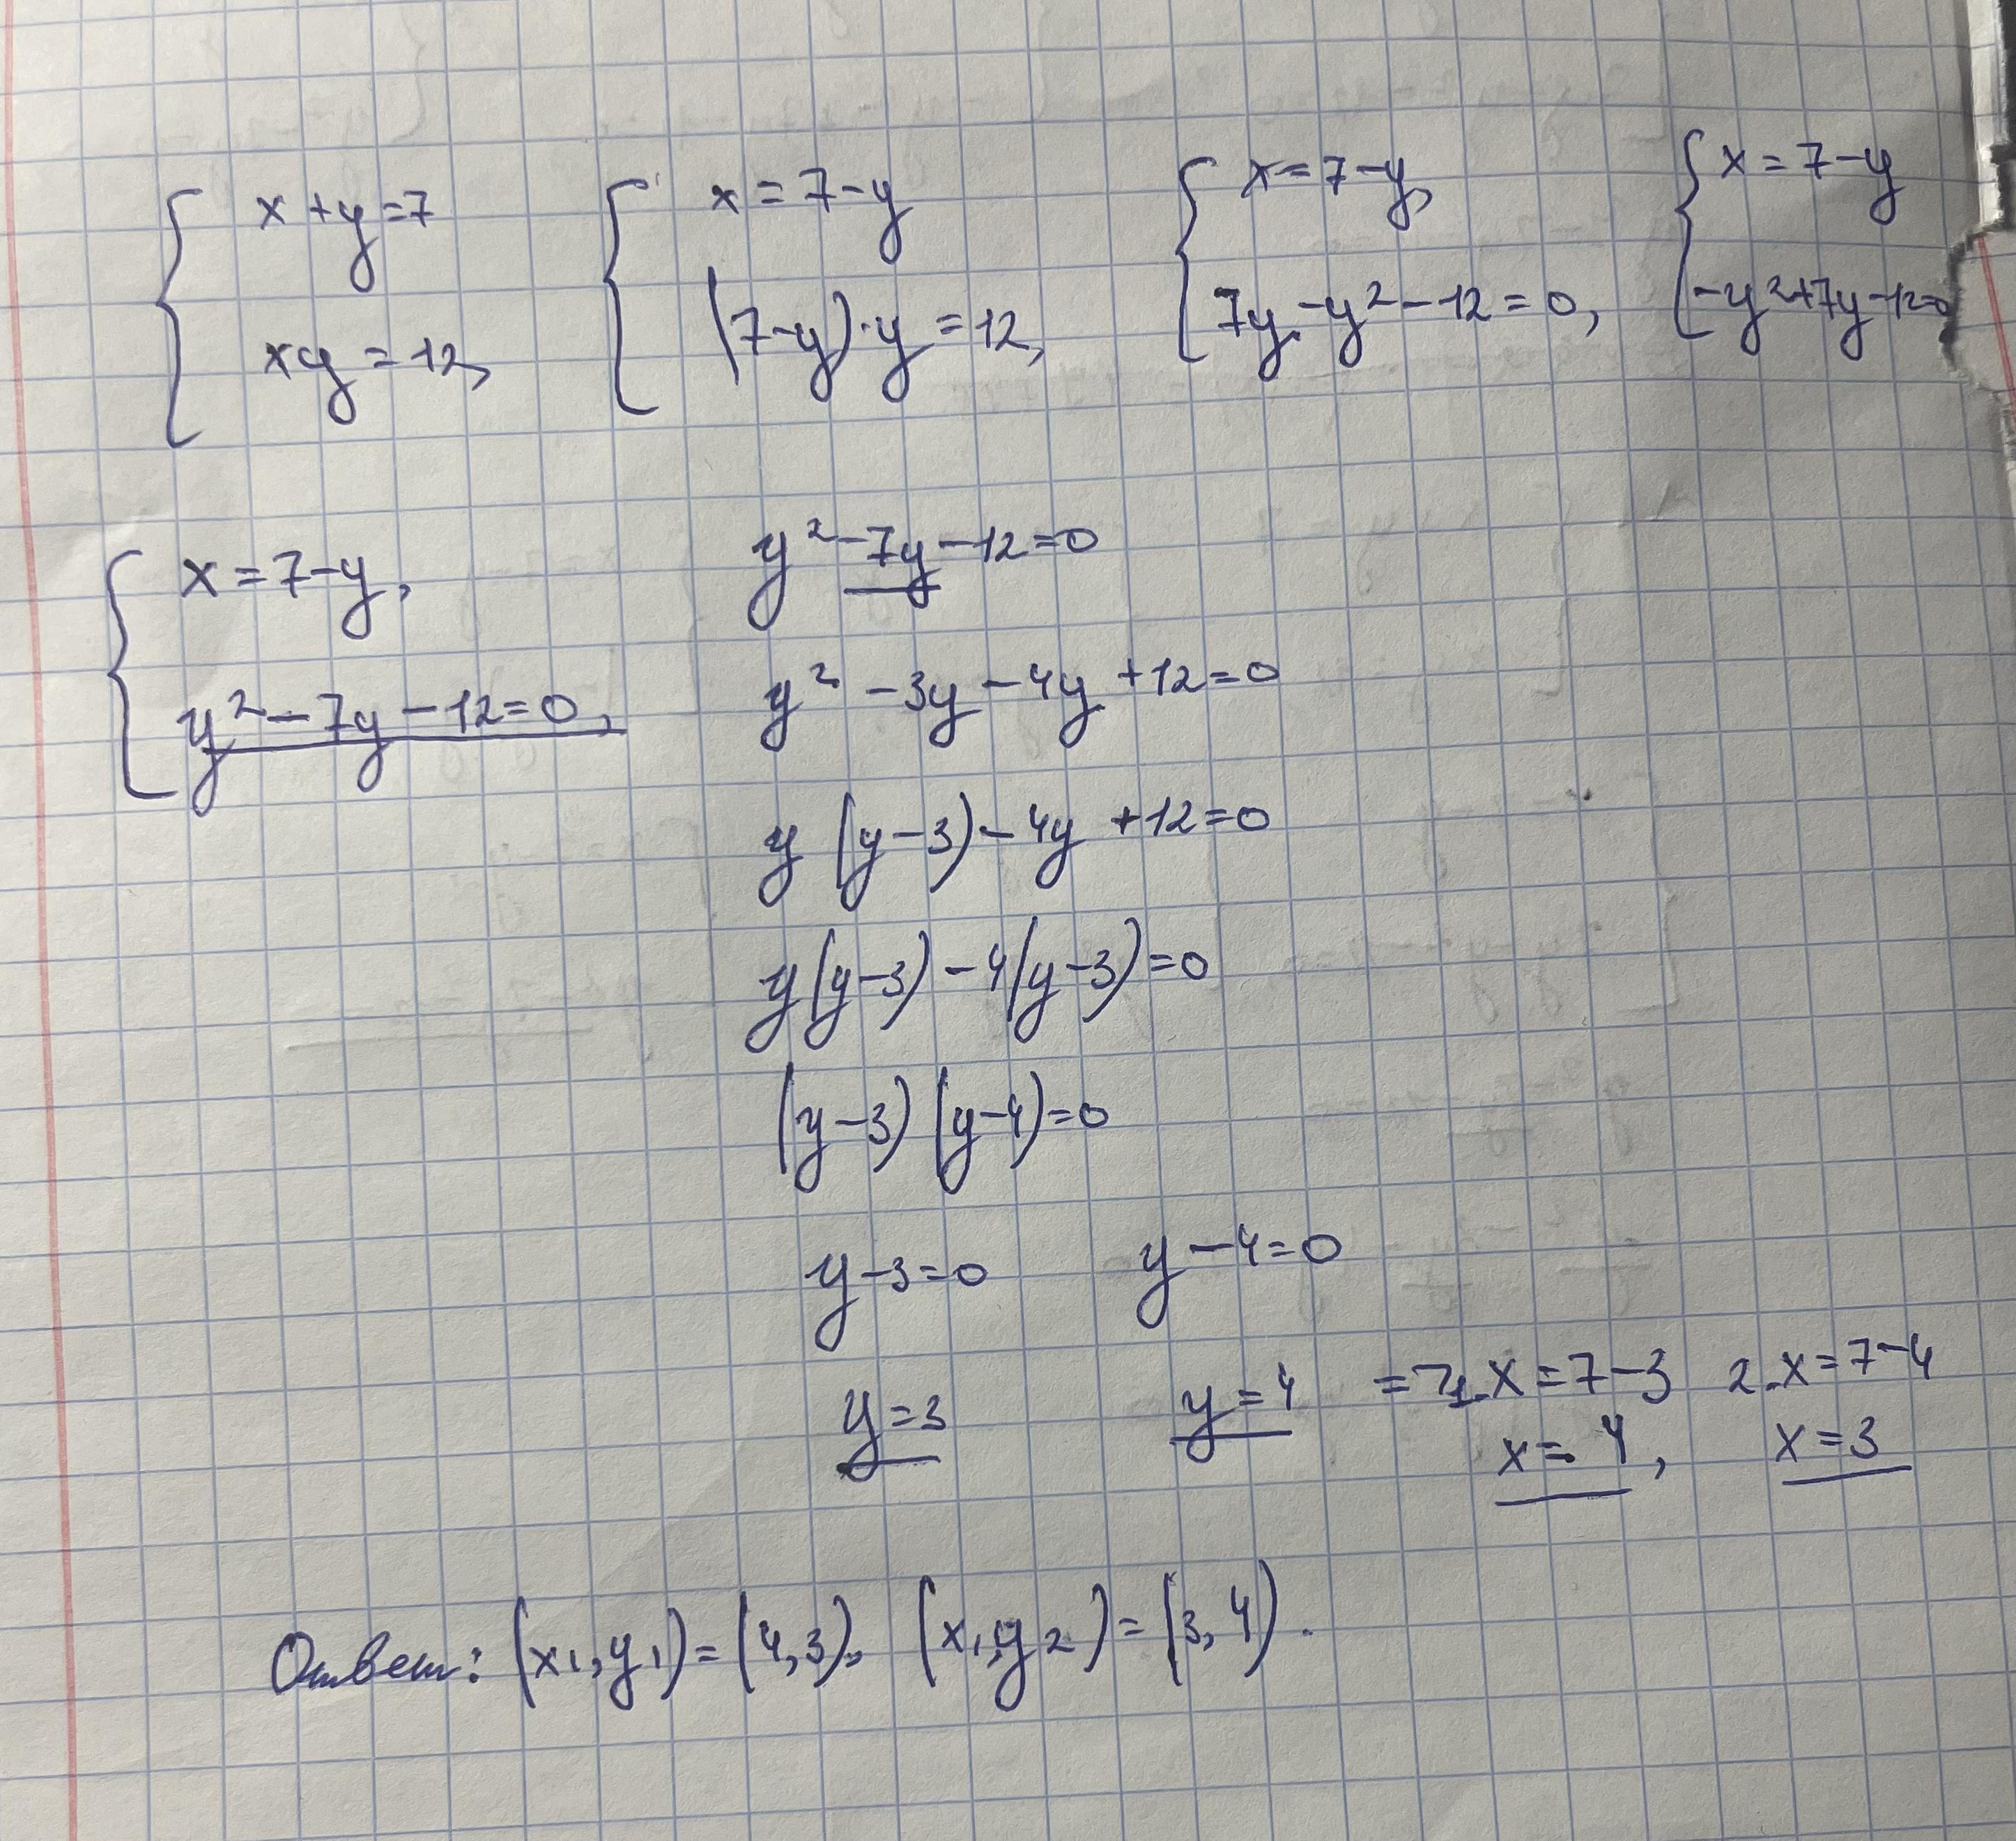 x+y=7 x=7-y x=7-y, x=7-y
xy=12, (7-y)·y=12, 7y-y²-12=0, -y²+7y-12=0
x=7-y, y²-7y-12=0
y²-7y-12=0, y²-3y-4y+12=0
y(y-3)-4y+12=0
y(y-3)-4(y-3)=0
(y-3)(y-4)=0
y-3=0 y-4=0
y=3 y=4 => 1. x=7-3 2. x=7-4
x=4, x=3
Ответ: (x₁,y₁)=(4,3), (x₁,y₂)=(3,4).